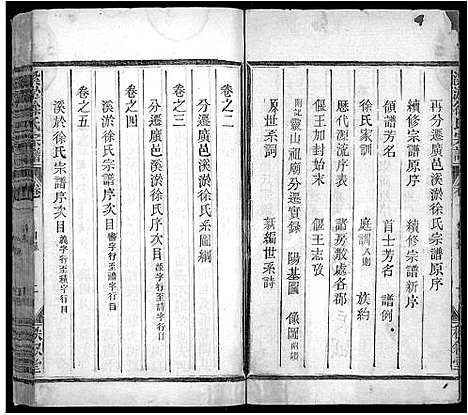 再分遷廣邑溪淤徐氏宗譜原序
續修宗譜原序 續修宗譜新序
領譜芳名 首士芳名 譜例
徐氏家訓 庭訓八則 族約
歷代源流序表 諸房散處各郡
偃王加封始末 偃王志攷
附記靈山祖廟分遷實錄 陽基圖 像圖
原世系詞 新編世系詩
卷之二
分遷廣邑溪淤徐氏系圖綱
卷之三
分遷廣邑溪淤徐氏宗譜序次目
卷之四
溪淤徐氏宗譜序次目
卷之五
溪於徐氏宗譜序次目